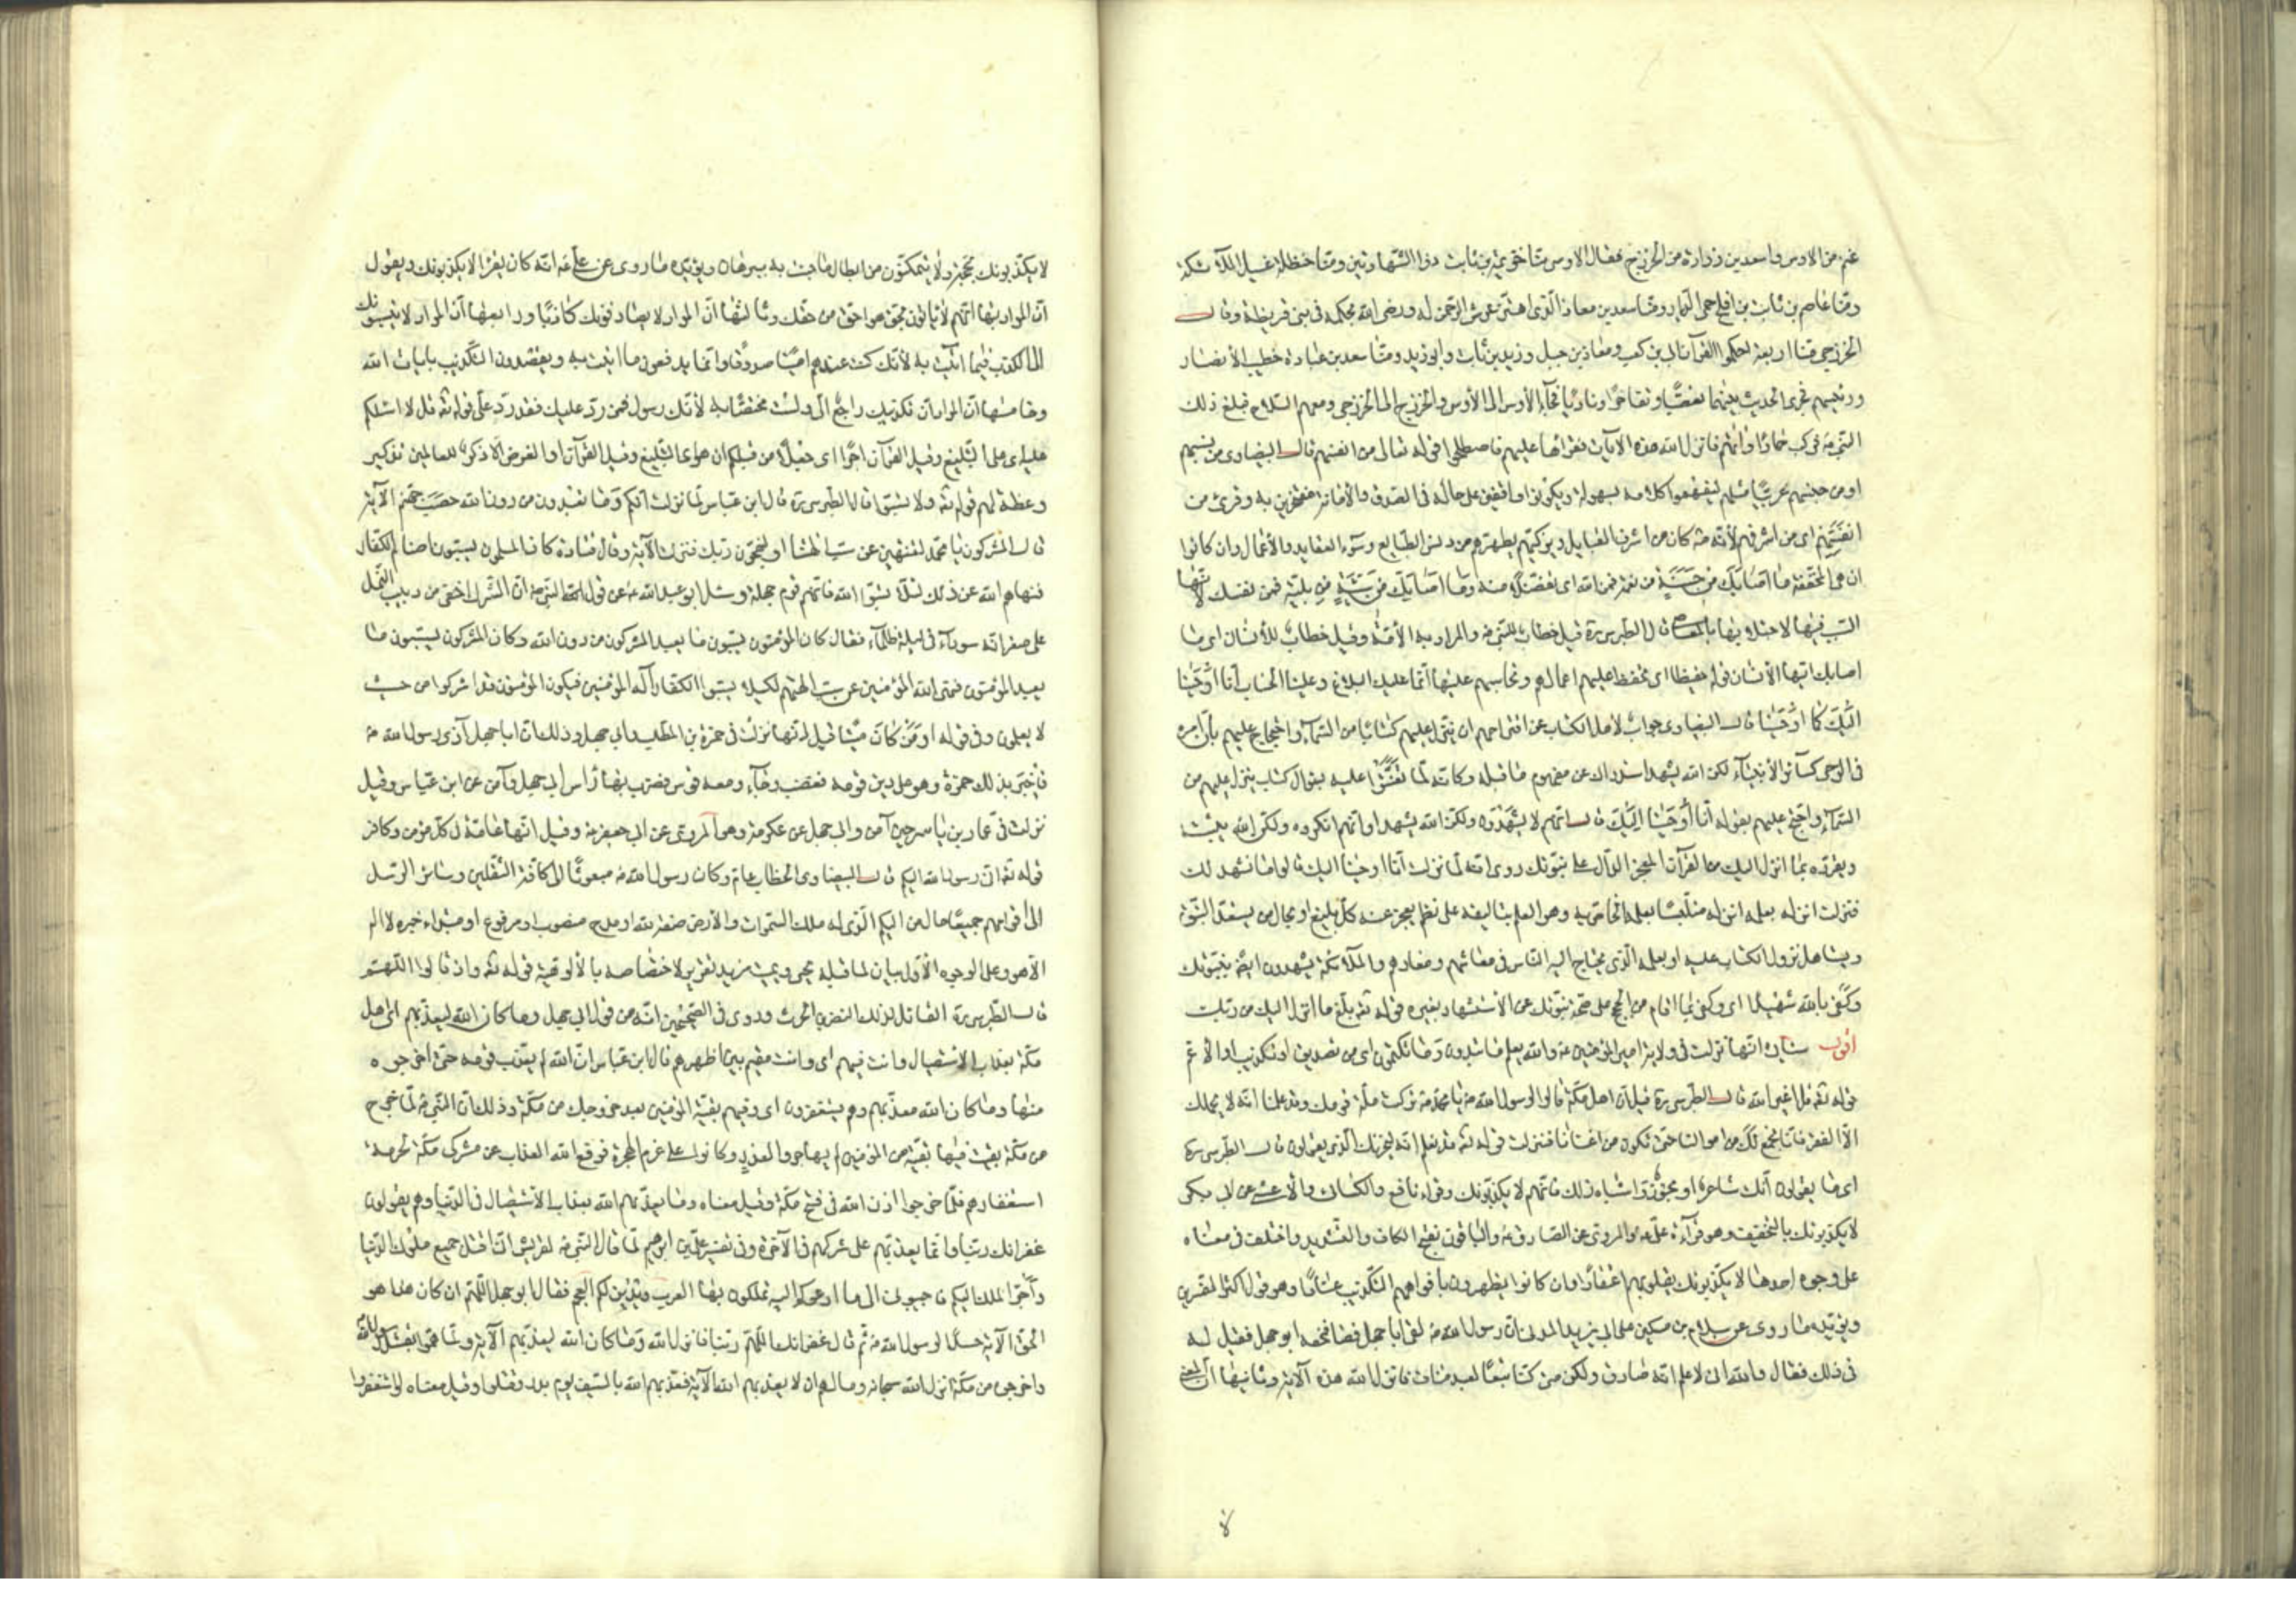 غنم من الاوس واسعد بن زرارة من الخزرج فقال الاوسى منا خزيمة بن ثابت ذو الشهادتين ومنا حنظلة غسيل الملائكة
ومنا عاصم بن ثابت بن افلح حمى الدبر ومنا سعد بن معاذ الذى اهتز عرش الرحمن له ورضى الله بحكمه فى بنى قريظة وقال
الخزرجى منا اربعة احكموا القرآن ابى بن كعب ومعاذ بن جبل وزيد بن ثابت وابو زيد ومنا سعد بن عبادة خطيب الأنصار
ورئيسهم فجرى الحديث بينهما تعصبا وتفاخرا وناديا فجآء الأوس الى الأوسى والخزرج الى الخزرجى ومعهم السلاح فبلغ ذلك
النبى ص فركب حمارا واتاهم فانزل الله هذه الآيات فقرأها عليهم فاصطلحوا قوله تعالى من انفسهم قال البيضاوى من نسبهم
او من جنسهم عربيا مثلهم ليفهموا كلامه بسهولة ويكونوا واقفين على حاله فى الصدق والأمانة مفتخرين به وقرئ من
انفسهم اى من اشرفهم لأنه ص كان من اشرف القبايل ويزكيهم يطهرهم من دنس الطبايع وسوء العقايد والأعمال وان كانوا
ان هى المخففة ما اصابك من حسنة من نعمة فمن الله اى تفضلا منه وما اصابك من سيئة من بلية فمن نفسك لأنها
السبب فيها لاجتلابها بالمعاصى قال الطبرسى ره قيل خطاب للنبى ص والمراد به الأمة وقيل خطاب للأنسان اى ما
اصابك ايها الأنسان قوله حفيظا اى تحفظ عليهم اعمالهم وتحاسبهم عليها انما عليك البلاغ وعلينا الحساب انا اوحينا
اليك كما اوحينا قال البيضاوى جواب لأهل الكتاب عن اقتراحهم ان ينزل عليهم كتابا من السمآء واحتجاج عليهم بأن امره
فى الوحى كسائر الأنبيآء لكن الله يشهد استدراك عن مفهوم ما قبله وكانه لما تعنتوا عليه بسؤال كتاب ينزل عليهم من
السمآء واحتج عليهم بقوله انا اوحينا اليك قال انهم لا يشهدون ولكن الله يشهد او انهم انكروه ولكن الله يثبته
ويقرره بما انزل اليك من القرآن المعجز الدال على نبوتك روى انه لما نزلت انا اوحينا اليك قالوا ما نشهد لك
فنزلت انزله بعلمه انزله متلبسا بعلمه الخاص به وهو العلم بتاليفه على نظم يعجز عنه كل بليغ او بحال من يستعد النبوة
ويستاهل نزول الكتاب عليه او بعلمه الذى يحتاج اليه الناس فى معاشهم ومعادهم والملائكة يشهدون ايضا بنبوتك
وكفى بالله شهيدا اى وكفى بما اقام من الحجج على صحة نبوتك عن الاستشهاد بغيره قوله تعه بلغ ما انزل اليك من ربك
اقول سيأتى انها نزلت فى ولاية امير المؤمنين ع والله يعلم ما تبدون وما تكتمون اى من تصديق او تكذيب او الأعم
قوله تعه قل اغير الله قال الطبرسى ره قيل ان اهل مكة قالوا لرسول الله ص يا محمد تركت ملة قومك وقد علمنا انه لا يحملك
الا الفقر فانا نجمع لك من اموالنا حتى تكون من اغنانا فنزلت قوله تعه قد نعلم انه ليحزنك الذى يقولون قال الطبرسى ره
اى ما يقولون انك شاعر او مجنون واشباه ذلك فانهم لا يكذبونك وقراء نافع والكسائى والأعشى عن ابى بكر
لا يكذبونك بالتخفيف وهو قرآءة على ع والمروى عن الصادق ع والباقون بفتح الكاف والتشديد واختلف فى معناه
على وجوه احدها لا يكذبونك بقلوبهم اعتقادا وان كانوا يظهرون بأفواههم التكذيب عنادا وهو قول اكثر المفسرين
ويؤيده ما روى عن سلام بن مسكين عن ابى يزيد المدنى ان رسول الله ص لقى ابا جهل فصافحه ابو جهل فقيل له
فى ذلك فقال والله انى لاعلم انه صادق ولكن متى كنا تبعا لعبد مناف فانزل الله هذه الآية وثانيها ان المعنى
لا
لا يكذبونك بحجة ولا يتمكنون من ابطال ما جئت به ببرهان ويؤيده ما روى عن على ع انه كان يقرأ لا يكذبونك ويقول
ان المراد بها انهم لا يأتون بحق هو احق من حقك وثالثها ان المراد لا يصادفونك كاذبا ورابعها ان المراد لا ينسبونك
الى الكذب فيما اتيت به لأنك كنت عندهم امينا صدوقا وانما يدفعون ما اتيت به ويقصدون التكذيب بايات الله
وخامسها ان المراد ان تكذيبك راجع الى ولست مختصا به لأنك رسول فمن رد عليك فقد رد على قوله تعه قل لا اسئلكم
عليه اى على التبليغ وقيل القرآن اجرا اى جعلا من قبلكم ان هو اى التبليغ وقيل القرآن او الغرض الا ذكرى للعالمين تذكير
وعظة لهم قوله تعه ولا تسبوا قال الطبرسى ره قال ابن عباس لما نزلت انكم وما تعبدون من دون الله حصب جهنم الآية
قال المشركون يا محمد لتنتهين عن سب الهتنا او لنهجون ربك فنزلت الآية وقال قتادة كان المسلمون يسبون اصنام الكفار
فنهاهم الله عن ذلك لئلا يسبوا الله فانهم قوم جهلة وسئل ابو عبد الله ع عن قول النبى ص ان الشرك اخفى من دبيب النمل
على صفوانة سودآء فى ليلة ظلمآء فقال كان المؤمنون يسبون ما يعبد المشركون من دون الله وكان المشركون يسبون ما
يعبد المؤمنون فنهى الله المؤمنين عن سب الهتهم لكيلا يسبوا الكفار اله المؤمنين فيكون المؤمنون قد اشركوا من حيث
لا يعلمون وفى قوله او من كان ميتا قيل انها نزلت فى حمزة بن المطلب وابى جهل وذلك ان ابا جهل آذى رسول الله ص
فأخبر بذلك حمزة وهو على دين قومه فغضب وجآء ومعه قوس فضرب بها رأس ابى جهل وآمن عن ابن عباس وقيل
نزلت فى عمار بن ياسر حين آمن وابى جهل عن عكرمة وهو المروى عن ابى جعفر ع وقيل انها عامة فى كل مؤمن وكافر
قوله تعه انى رسول الله اليكم قال البيضاوى الخطاب عام وكان رسول الله ص مبعوثا الى كافة الثقلين وسائر الرسل
الى اقوامهم جميعا حال من اليكم الذى له ملك السموات والأرض صفة لله او مدح منصوب او مرفوع او مبتداء خبره لا اله
الا هو وعلى الوجوه الأول بيان لما قبله يحيى ويميت مزيد تقرير لاختصاصه بالألوهية قوله تعه واذ قالوا اللهم
قال الطبرسى ره القائل لذلك النضر بن الحرث وروى فى الصحيحين انه من قول ابى جهل وما كان الله ليعذبهم اى اهل
مكة بعذاب الاستيصال وانت فيهم اى وانت مقيم بين اظهرهم قال ابن عباس ان الله لم يعذب قومه حتى اخرجوه
منها وما كان الله معذبهم وهم يستغفرون اى وفيهم بقية المؤمنين بعد خروجك من مكة وذلك ان النبى ص لما خرج
من مكة بقيت فيها بقية من المؤمنين لم يهاجروا لعذر وكانوا على عزم الهجرة فرفع الله العذاب عن مشركى مكة لحرمة
استغفارهم فلما خرجوا اذن الله فى فتح مكة وقيل معناه وما يعذبهم الله بعذاب الاستيصال فى الدنيا وهم يقولون
غفرانك ربنا وانما يعذبهم على شركهم فى الآخرة وفى تفسير على بن ابرهيم لما قال النبى ص لقريش انى اقتل جميع ملوك الدنيا
واجر الملك اليكم فاجيبونى الى ما ادعوكم اليه تملكون بها العرب وتدين لكم العجم فقال ابو جهل اللهم ان كان هذا هو
الحق الآية حسدا لرسول الله ص ثم قال غفرانك اللهم ربنا فانزل الله وما كان الله ليعذبهم الآية ولما هموا بقتل رسول الله
واخرجوه من مكة انزل الله سبحانه وما لهم ان لا يعذبهم الله الآية فعذبهم الله بالسيف يوم بدر وقتلوا وقيل معناه لو استغفروا